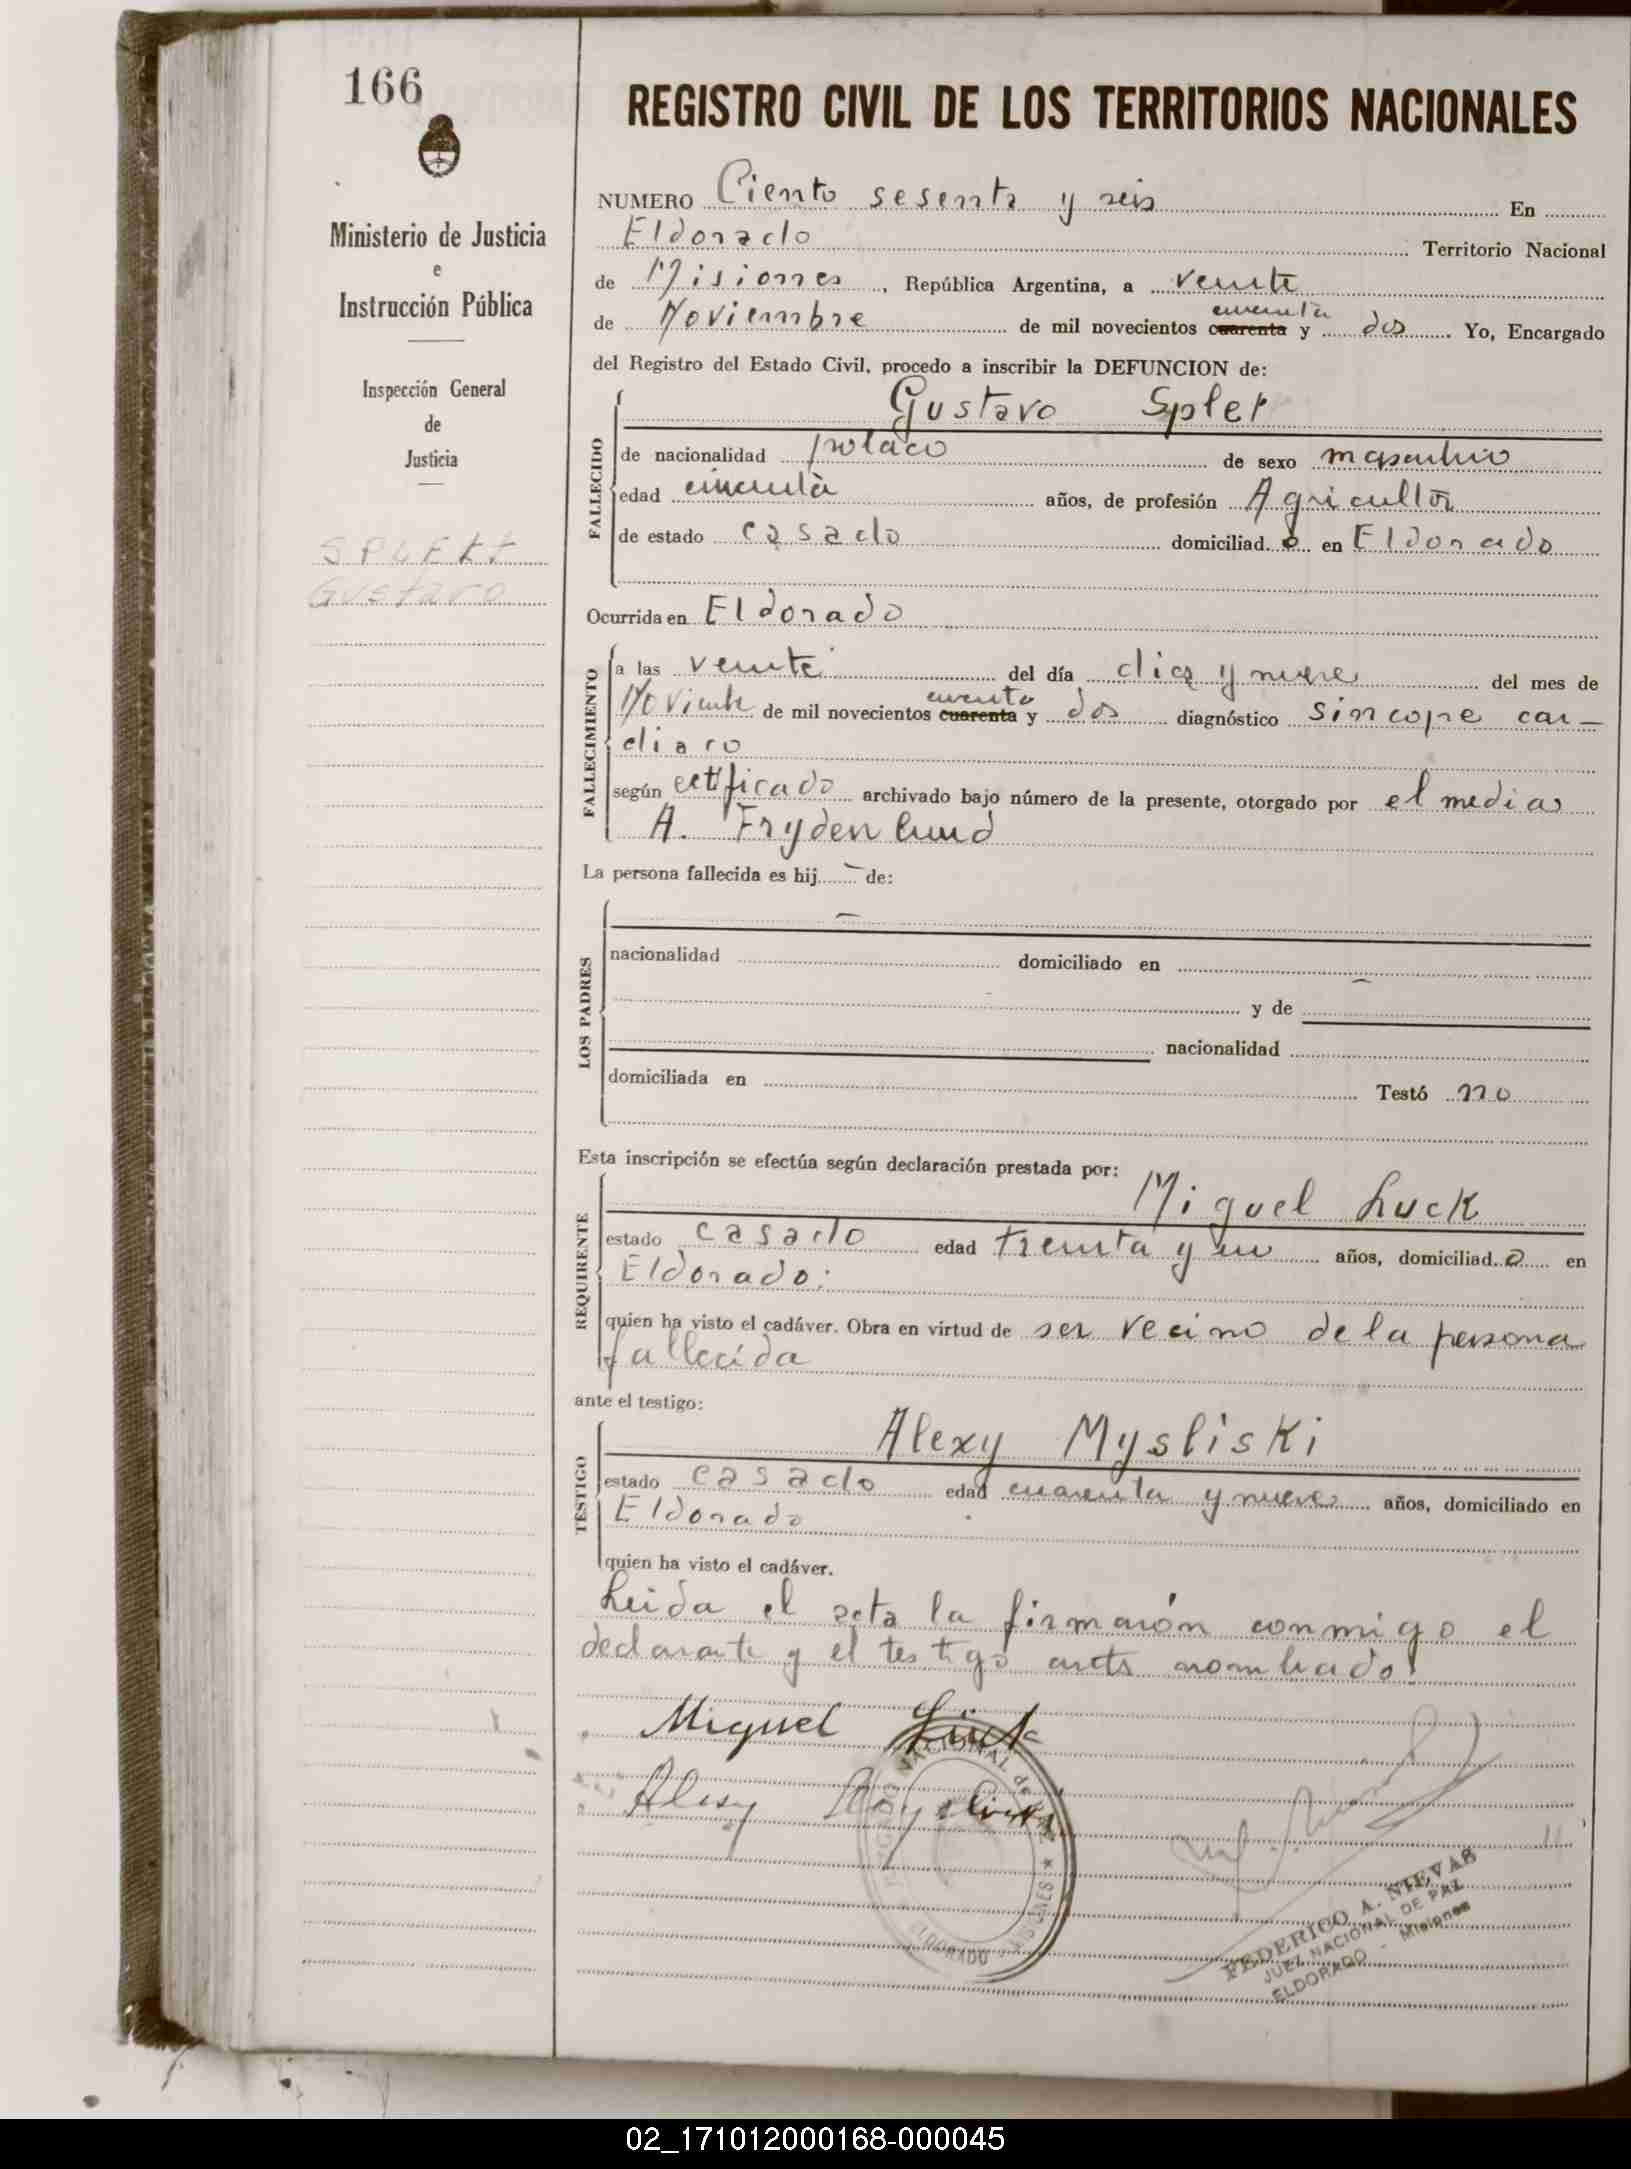 166
REGISTRO CIVIL DE LOS TERRITORIOS NACIONALES
Ministerio de Justicia
e
Instrucción Pública
Inspección General
de
Justicia
Gustavo
NUMERO Ciento sesenta y seis En
Eldorado Territorio Nacional
de Misiones, República Argentina, a veinte
cincuenta
de Noviembre de mil novecientos cuarenta y dos Yo, Encargado
del Registro del Estado Civil, procedo a inscribir la DEFUNCION de:
Gustavo Splet
FALLECIDO
de nacionalidad polaco de sexo masculino
edad cincuenta años, de profesión Agricultor
de estado casado domiciliad o en Eldorado
Ocurrida en Eldorado
FALLECIMIENTO
a las veinte del día diez y nueve del mes de
cincuenta
Noviembre de mil novecientos cuarenta y dos diagnóstico sincope car-
diaco
según certificado archivado bajo número de la presente, otorgado por el medico
A. Frydenlund
La persona fallecida es hij - de:
LOS PADRES
nacionalidad domiciliado en
y de
nacionalidad
domiciliada en Testó no
Esta inscripción se efectúa según declaración prestada por:
Miguel Luck
REQUIRENTE
estado casado edad treinta y un años, domiciliad o en
Eldorado.
quien ha visto el cadáver. Obra en virtud de ser vecino de la persona
fallecida
ante el testigo:
Alexy Mysliski
TESTIGO
estado casado edad cuarenta y nueve años, domiciliado en
Eldorado
quien ha visto el cadáver.
Leida el acta la firmarón conmigo el
declarante y el testigo antes nombrado.
Miguel Lück
Alexy
JUZGADO NACIONAL de PAZ
ELDORADO MISIONES
FEDERICO A. NIEVAS
JUEZ NACIONAL DE PAZ
ELDORADO - Misiones
02_171012000168-000045